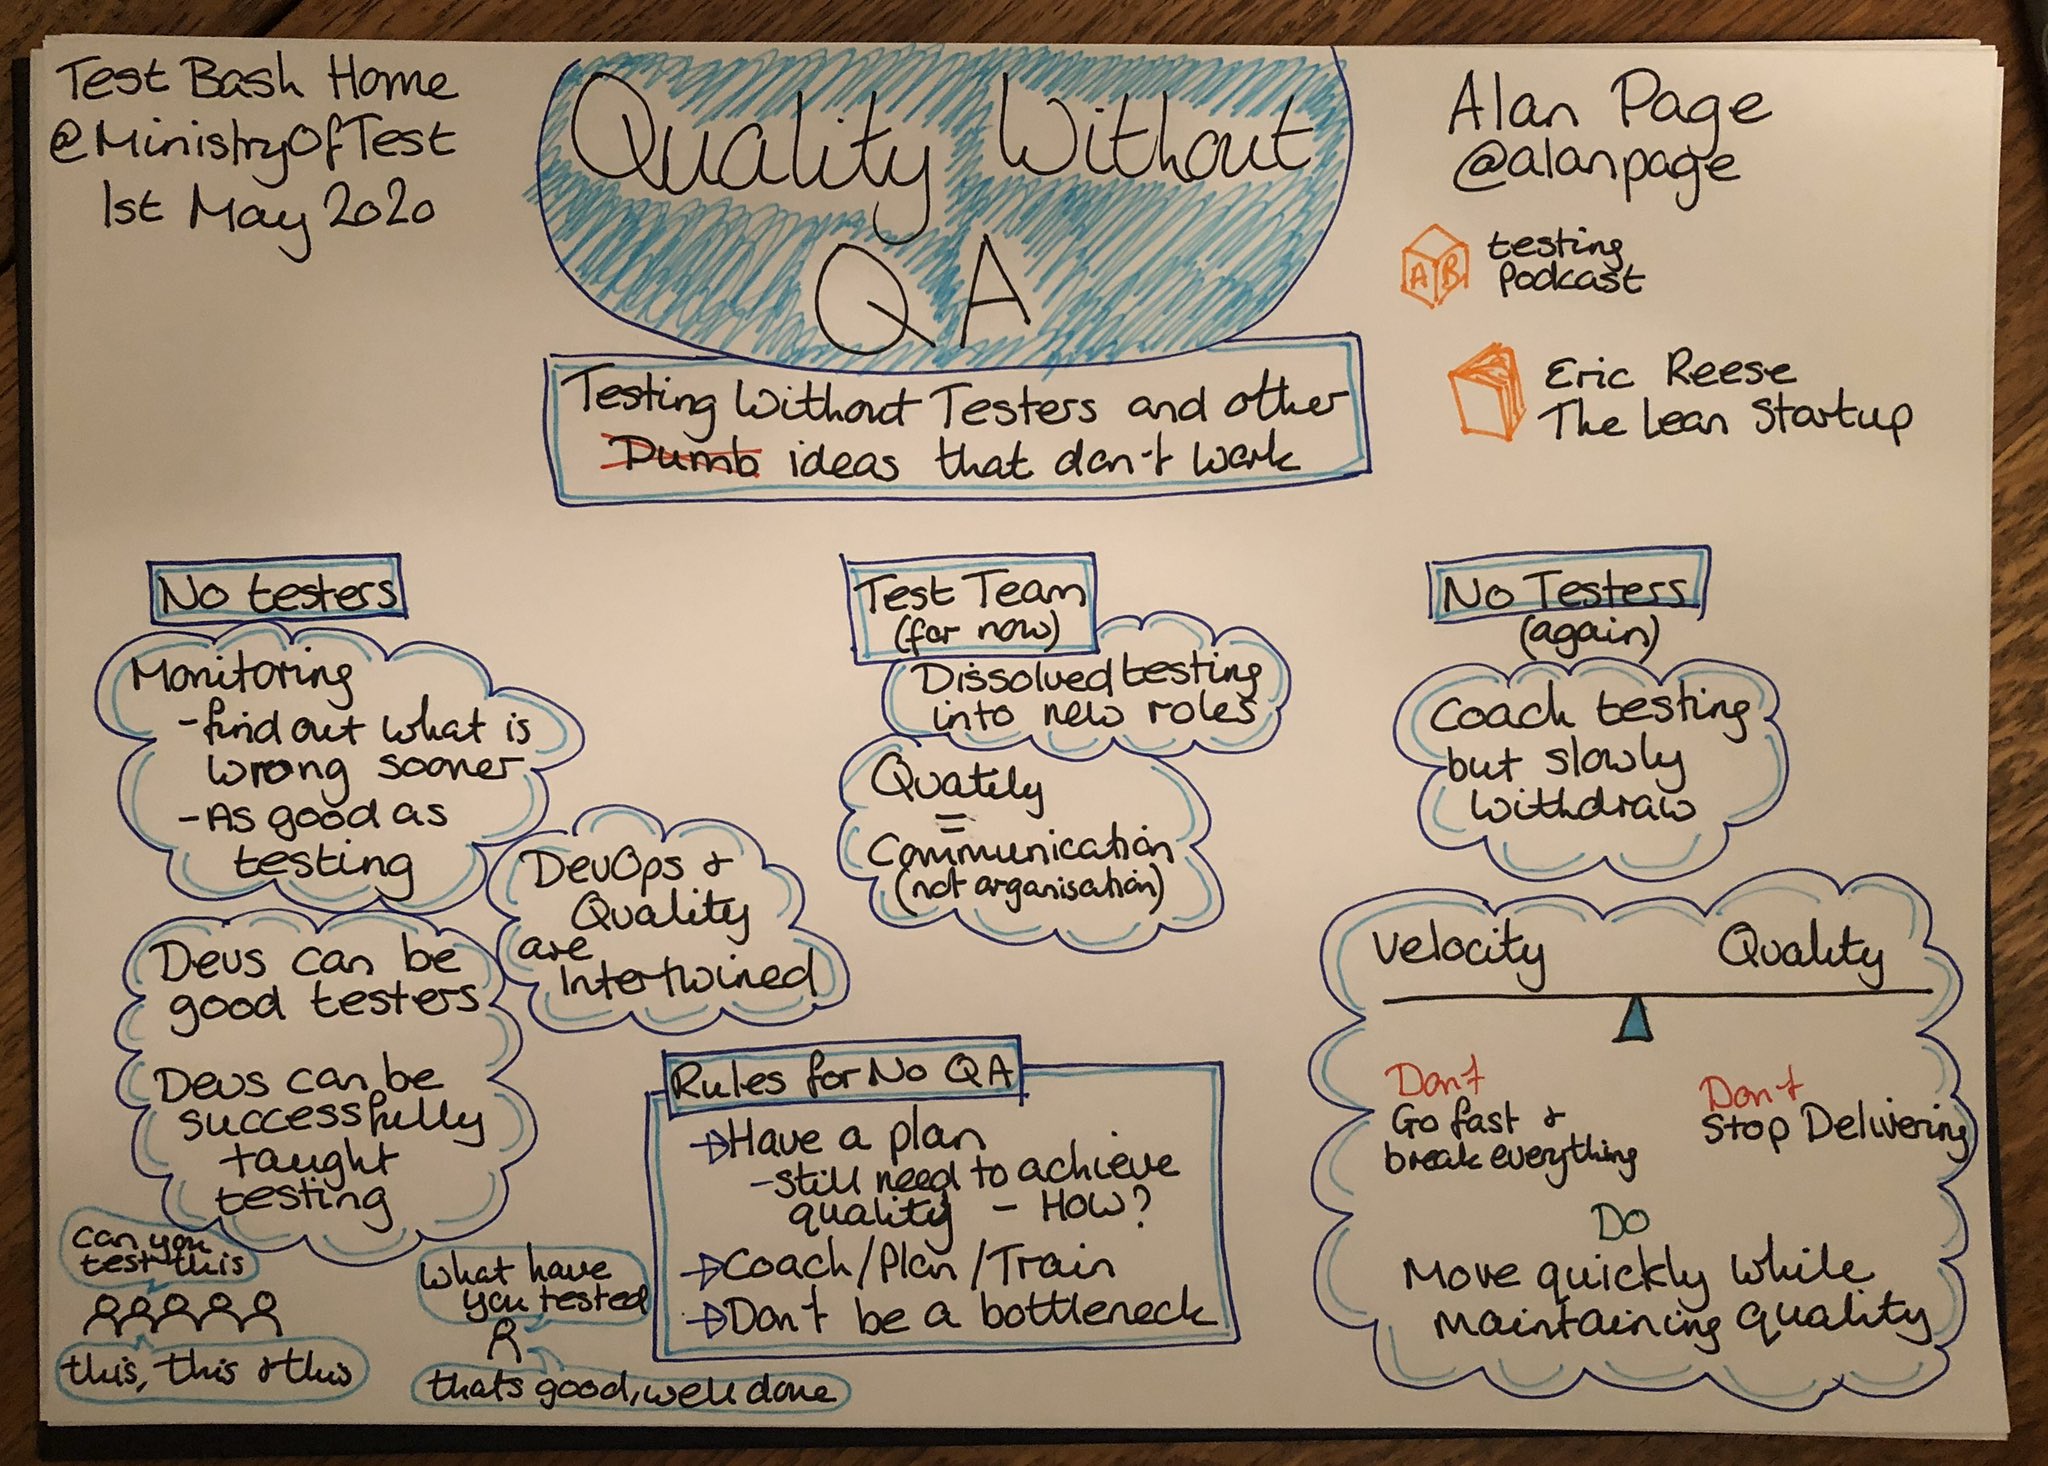 Test Bash Home
@MinistryOfTest
1st May 2020
Quality Without
QA
Testing Without Testers and other
Dumb ideas that don't work
Alan Page
@alanpage
A B
testing
Podcast
Eric Reese
The Lean Startup
No testers
Monitoring
-find out what is
wrong sooner
-As good as
testing
DevOps &
Quality
are
Intertwined
Devs can be
good testers
Devs can be
successfully
taught
testing
can you
test this
this, this & this
What have
you tested
thats good, well done
Test Team
(for now)
Dissolved testing
into new roles
Quately
=
Communication
(not organisation)
Rules for No QA
→Have a plan
-still need to achieve
quality - How?
→Coach/Plan/Train
→Don't be a bottleneck
No Testers
(again)
Coach testing
but slowly
withdraw
Velocity Quality
Don't
Go fast &
break everything
Don't
Stop Delivering
DO
Move quickly while
maintaining quality